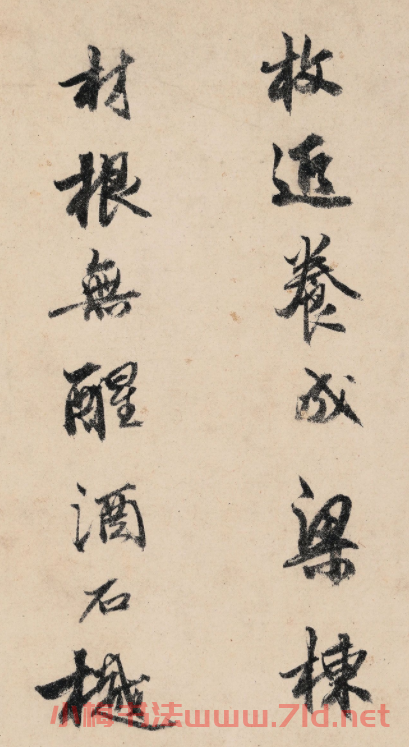 枚養成梁棟
材根無醒酒石樾
小梅书法www.7ld.net